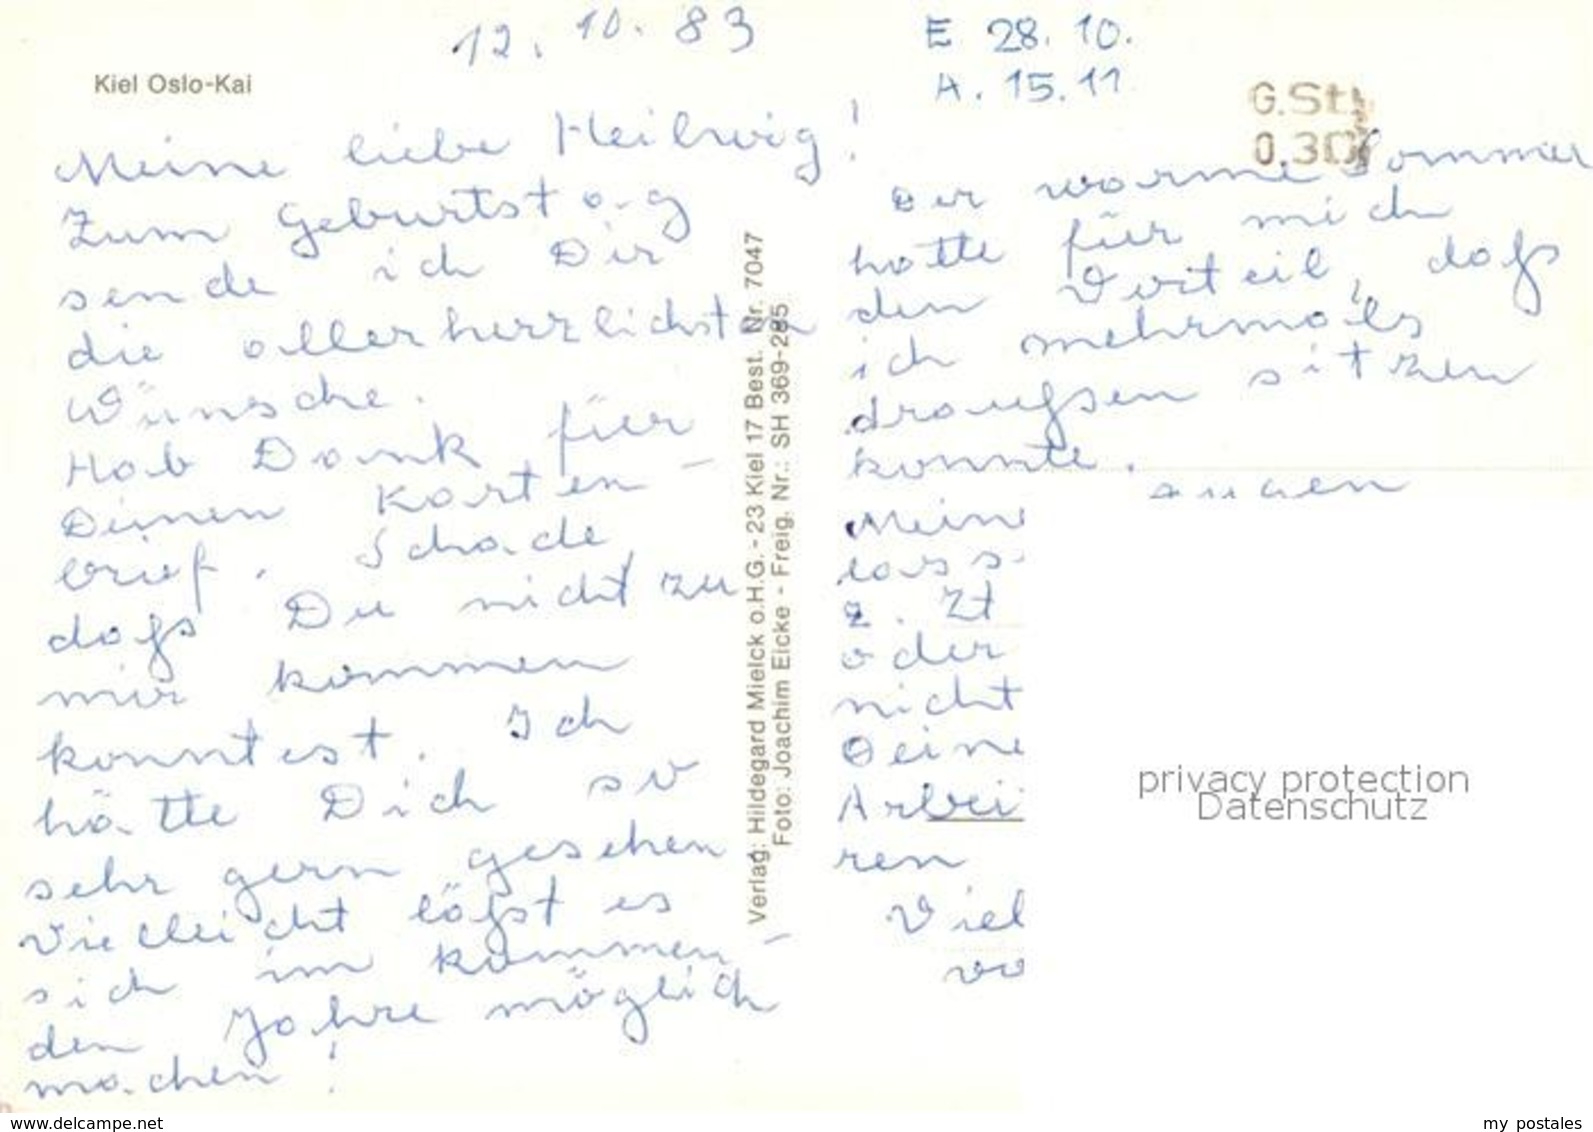 12. 10. 83
E 28. 10.
A. 15. 11
Kiel Oslo-Kai
G.St.
0.30
Meine liebe Heilwig!
Zum Geburtstag
sende ich Dir
die allerherzlichsten
Wünsche.
Hab Dank für
Deinen Karten-
brief. Schade,
daß Du nicht zu
mir kommen
konntest. Ich
hätte Dich so
sehr gern gesehen
Vielleicht läßt es
sich im kommen-
den Jahre möglich
machen!
Verlag: Hildegard Mielck o.H.G. - 23 Kiel 17 Best. Nr. 7047
Foto: Joachim Eicke - Freig. Nr.: SH 369-285
Der warme Sommer
hatte für mich
den Vorteil, daß
ich mehrmals
draußen sitzen
konnte.
Mein
lass
z. Zt
oder
nicht
Deine
Arbei
ren
Viel
vo
privacy protection
Datenschutz
www.delcampe.net
my postales